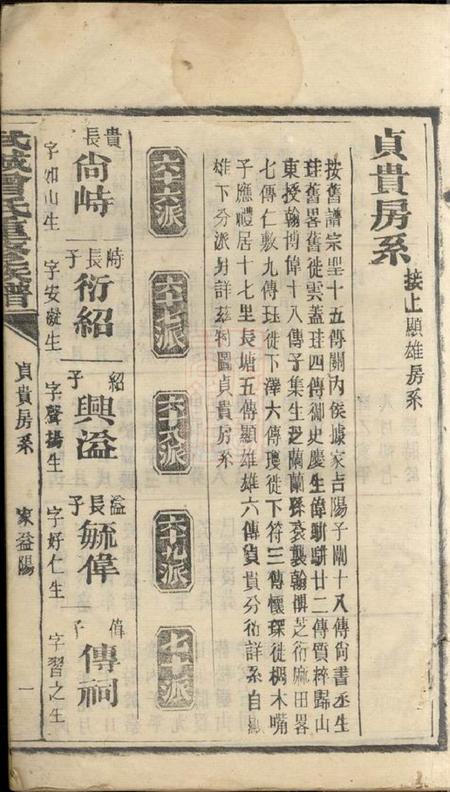 貞貴房系
接上顯雄房系
按舊譜宗聖十五傳關內侯據家吉陽子闡十八傳尚書丞生
珪舊畧舊徙雲蓋珪四傳御史慶生偉駢駢廿二傳質粹歸山
東授翰博偉十八傳子集生 蘭蘭孫 襲翰撰芝衍麻田畧
七傳仁敷九傳珏徙下澤六傳瓊徙下符三傳懷琛徙楓木嘴
子應禮居十七里長塘五傳顯雄雄六傳貞貴分衍詳系自顯
雄下分派另詳茲特圖貞貴房系
六十六派
六十七派
六十八派
六十九派
七十派
貴長 尚峙 字如山生
峙長子 衍紹 字安凝生
紹子 興溢 字聲揚生
溢長子 毓偉 字好仁生
偉子 傳祠 字習之生
武城曾氏重修族譜
貞貴房系
家益陽
一